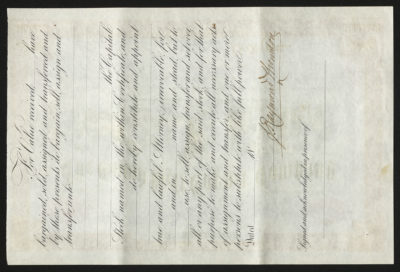 For Value received        have
bargained, sold, assigned and transferred and
by these presents do bargain, sell, assign and
transfer unto
the Capital
Stock named in the within Certificate, and
do hereby constitute and appoint
true and lawful Attorney, irrevocable, for
and in        name and stead, but to
use, to sell, assign, transfer and set over
all or any part of the said stock, and for that
purpose to make and execute all necessary acts
of assignment and transfer, and one or more
persons to substitute with like full power.
Dated        18
Signed and acknowledged in presence of